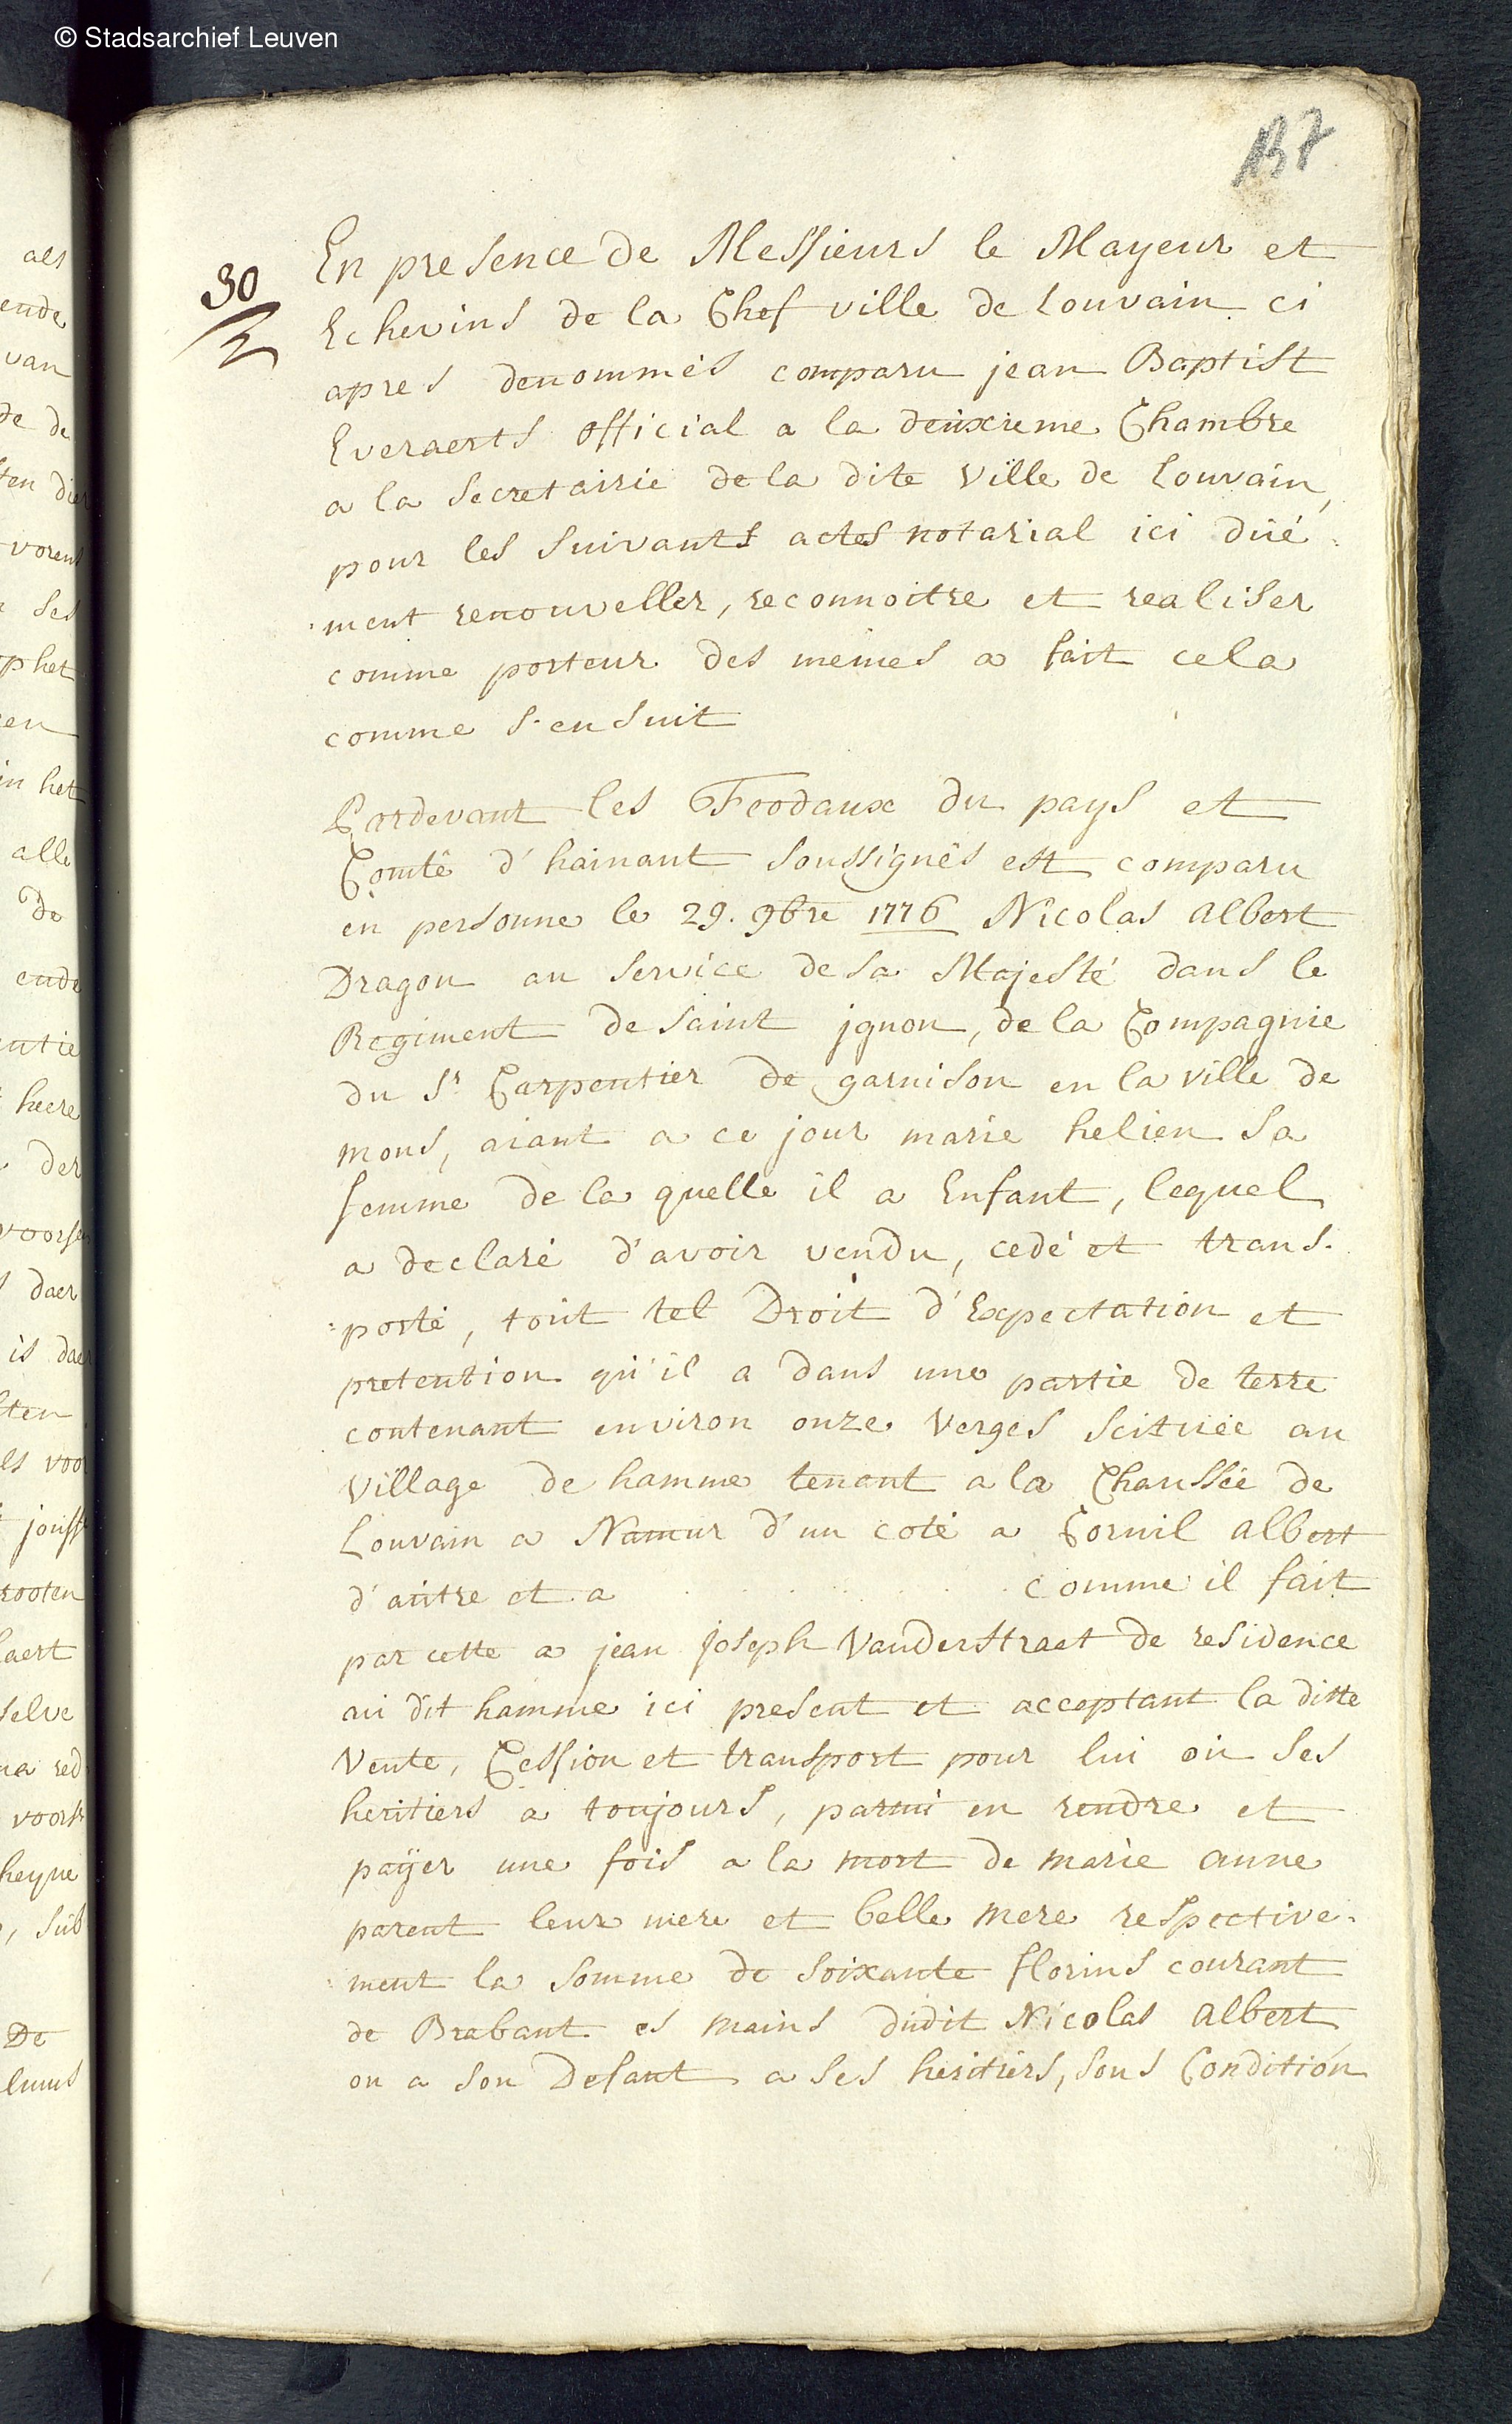 © Stadsarchief Leuven
137
30
En presence de Messieurs le Mayeur et
Echevins de la Chef ville de Louvain ci
apres denommés comparu jean Baptist
Everaerts official a la deuxieme Chambre
a la Secretairie de la dite Ville de Louvain,
pour les suivants actes notarial ici düé
ment renouveller, reconnoitre et realiser
comme porteur des mêmes a fait cela
comme s'ensuit
Pardevant les Feodaux du pays et
Comté d'hainaut soussignés est comparu
en personne le 29. 9bre 1776 Nicolas Albert
Dragon au service de sa Majesté dans le
Regiment de saint jgnon, de la Compagnie
du Sr Carpentier de garnison en la ville de
mons, aiant a ce jour marie helien sa
femme de la quelle il a Enfant, lequel
a declaré d'avoir vendu, cedé et trans-
porté, tout tel Droit d'Expectation et
pretention qu'il a dans une partie de terre
contenant environ onze Verges scituée au
Village de hamme tenant a la Chaussée de
Louvain a Namur d'un coté a Cornil Albert
d'autre et a . . . . . comme il fait
par cette a jean joseph Vanderstraet de residence
au dit hamme ici present et acceptant la ditte
Vente, Cession et transport pour lui ou ses
heritiers a toujours, parmi en rendre et
paÿer une fois a la mort de marie anne
parent leur mere et belle mere respective-
ment la somme de soixante florins courant
de Brabant es mains dudit Nicolas Albert
ou a son Defaut a ses heritiers, sous Condition
als
ende
van
de de
vorens
ses
op het
en
in het
alle
de
ende
entie
heere
der
voors
daer
is daer
ten
voor
rooten
aert
selve
red
voors
heyne
, sub
De